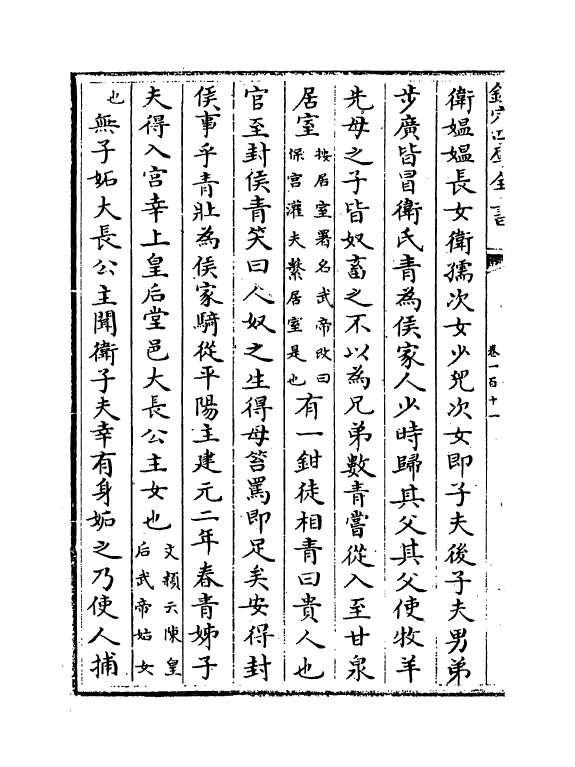 欽定四庫全書
卷一百十一
衛媪媪長女衛孺次女少兒次女即子夫後子夫男弟
步廣皆冒衛氏青為侯家人少時歸其父其父使牧羊
先母之子皆奴畜之不以為兄弟數青嘗從入至甘泉
居室按居室署名武帝改曰
保宮灌夫繫居室是也有一鉗徒相青曰貴人也
官至封侯青笑曰人奴之生得毋笞罵即足矣安得封
侯事乎青壯為侯家騎從平陽主建元二年春青姊子
夫得入宮幸上皇后堂邑大長公主女也文穎云陳皇
后武帝姑女
也無子妬大長公主聞衛子夫幸有身妬之乃使人捕